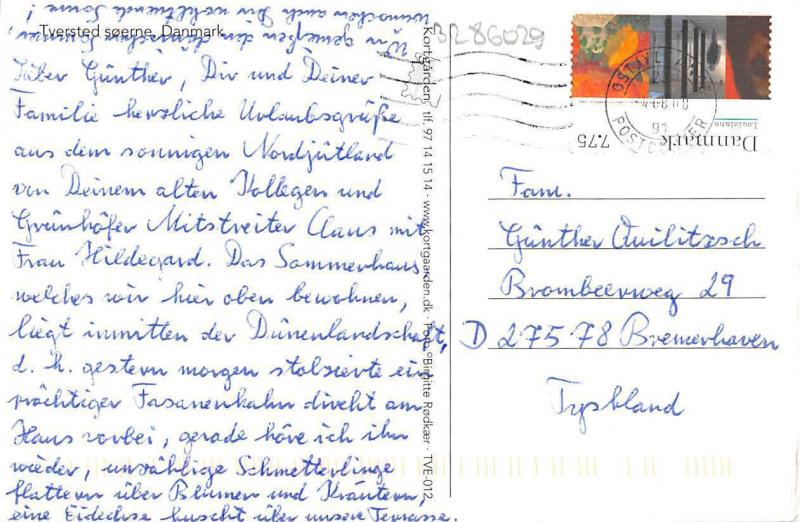 Tversted søerne, Danmark
Lieber Günther, Dir und Deiner
Familie herzliche Urlaubsgrüße
aus dem sonnigen Nordjütland
von Deinem alten Kollegen und
Grünhöfer Mitstreiter Claus mit
Frau Hildegard. Das Sommerhaus
welches wir hier oben bewohnen,
liegt inmitten der Dünenlandschaft,
d. h. gestern morgen stolzierte ein
prächtiger Fasanenhahn direkt am
Haus vorbei, gerade höre ich ihn
wieder, unzählige Schmetterlinge
flattern über Blumen und Kräutern,
eine Eidechse huscht über unsere Terrasse.
Wir genießen den dänischen Sommer
wünschen auch Dir wohltuende Sonne!
Kortgården, tlf. 97 14 15 14 · www.kortgaarden.dk · Foto: ©Birgitte Rødkær · TVE-012
3286029
POSTCENTER
Danmark
Louisiana
7.75
Fam.
Günther Quilitzsch
Brombeerweg 29
D 27578 Bremerhaven
Tyskland